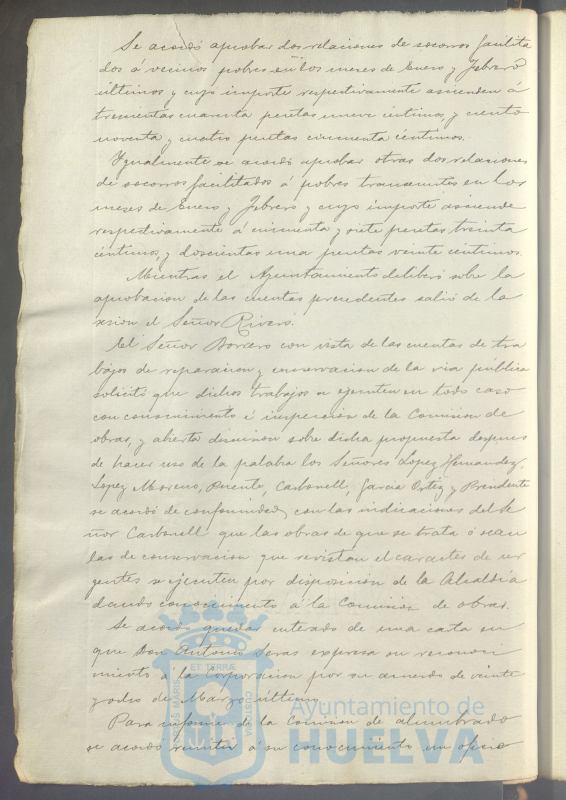 Se acordó aprobar dos relaciones de socorros facilita
dos á vecinos pobres en los meses de Enero y Febrero
últimos y cuyo importe respectivamente ascienden á
trescientas cuarenta pesetas nueve céntimos, y ciento
noventa y cuatro pesetas cincuenta céntimos.
Igualmente se acordó aprobar otras dos relaciones
de socorros facilitados á pobres transeuntes en los
meses de Enero y Febrero y cuyo importe asciende
respectivamente á cincuenta y siete pesetas treinta
céntimos, y doscientas una pesetas veinte céntimos.
Mientras el Ayuntamiento deliberó sobre la
aprobacion de las cuentas precedentes salió de la
sesion el Señor Rivero.
El Señor Borrero con vista de las cuentas de tra
bajos de reparacion y conservacion de la via pública
solicitó que dichos trabajos se ejecuten en todo caso
con conocimiento é inspeccion de la Comision de
obras, y abierta discusion sobre dicha propuesta despues
de hacer uso de la palabra los Señores Lopez Hernandez,
Lopez Moreno, Puente, Carbonell, Garcia Ortiz y Presidente
se acordó de conformidad con las indicaciones del Se
ñor Carbonell que las obras de que se trata ó sean
las de conservacion que revistan el caracter de ur
gentes se ejecuten por disposicion de la Alcaldía
dando conocimiento á la Comision de obras.
Se acordó quedar enterado de una carta en
que Don Antonio Seras expresa su reconoci
miento á la Corporacion por su acuerdo de veinte
y ocho de Marzo último.
Para informe de la Comision de alumbrado
se acordó remitir á su conocimiento un oficio
Ayuntamiento de
HUELVA